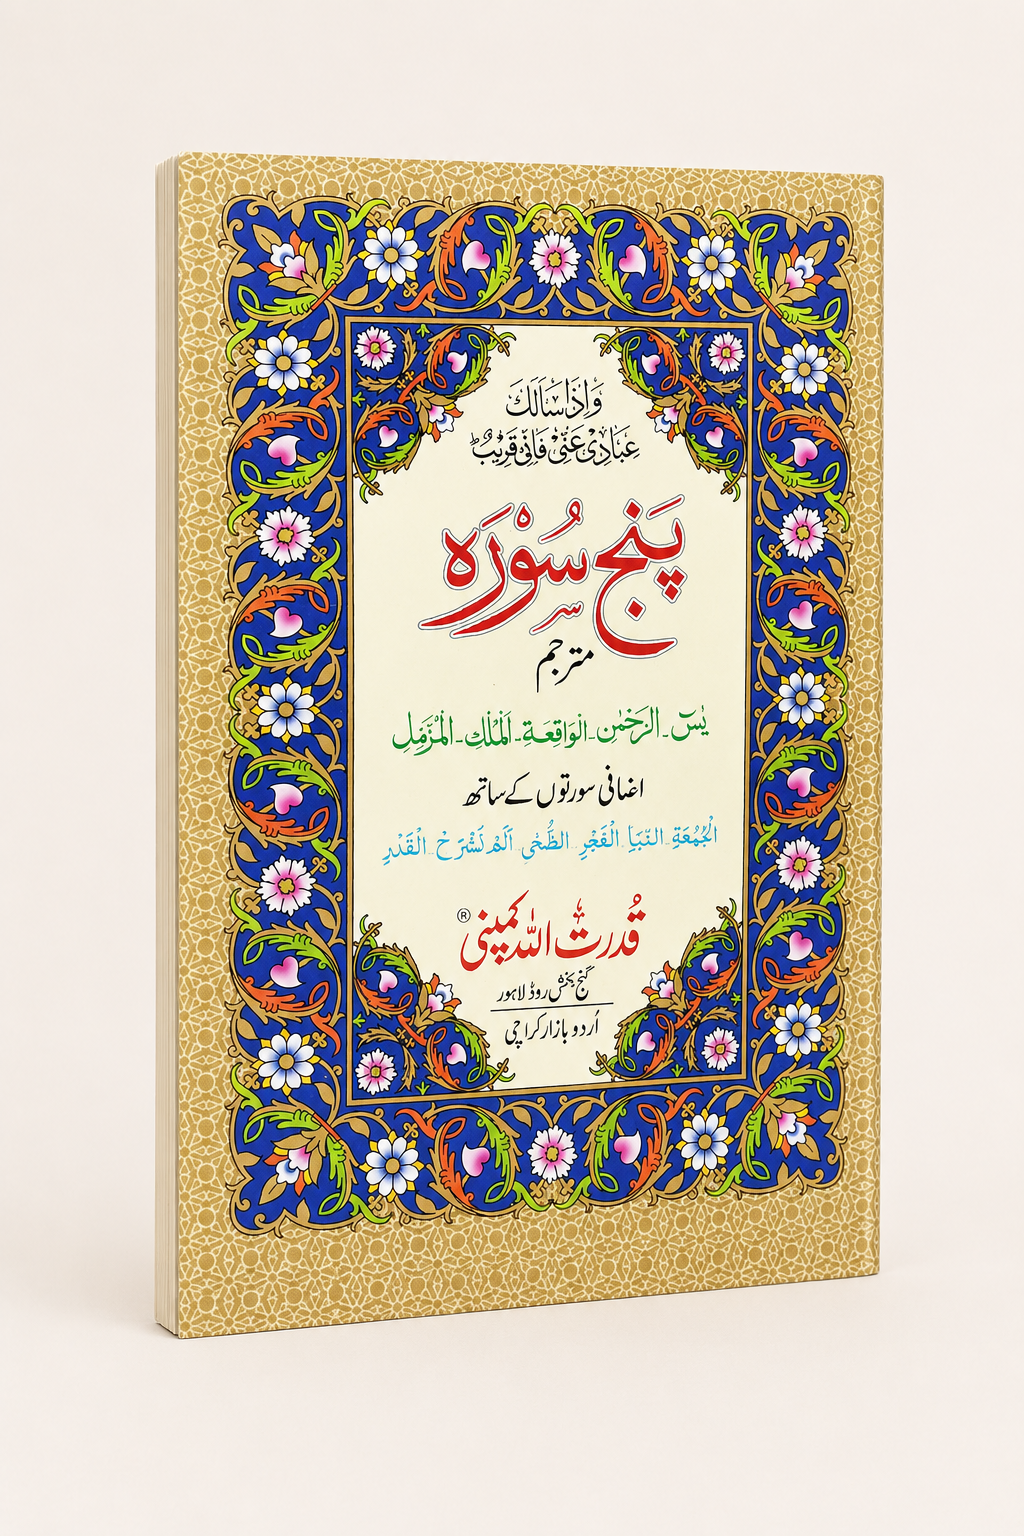 وَاِذَا سَاَلَكَ
عِبَادِىْ عَنِّىْ فَاِنِّىْ قَرِيْبٌ ؕ
پَنج سُوْرَه
مترجم
يٰسٓ ۔ الرَّحْمٰن ۔ الْوَاقِعَة ۔ الْمُلْك ۔ الْمُزَّمِّل
اضافی سورتوں کے ساتھ
الْجُمُعَةِ ۔ النَّبَاِ ۔ الْفَجْرِ ۔ الضُّحٰى ۔ اَلَمْ نَشْرَحْ ۔ الْقَدْرِ
قُدرت اللہ کمپنی ®
گنج بخش روڈ لاہور
اُردو بازار کراچی